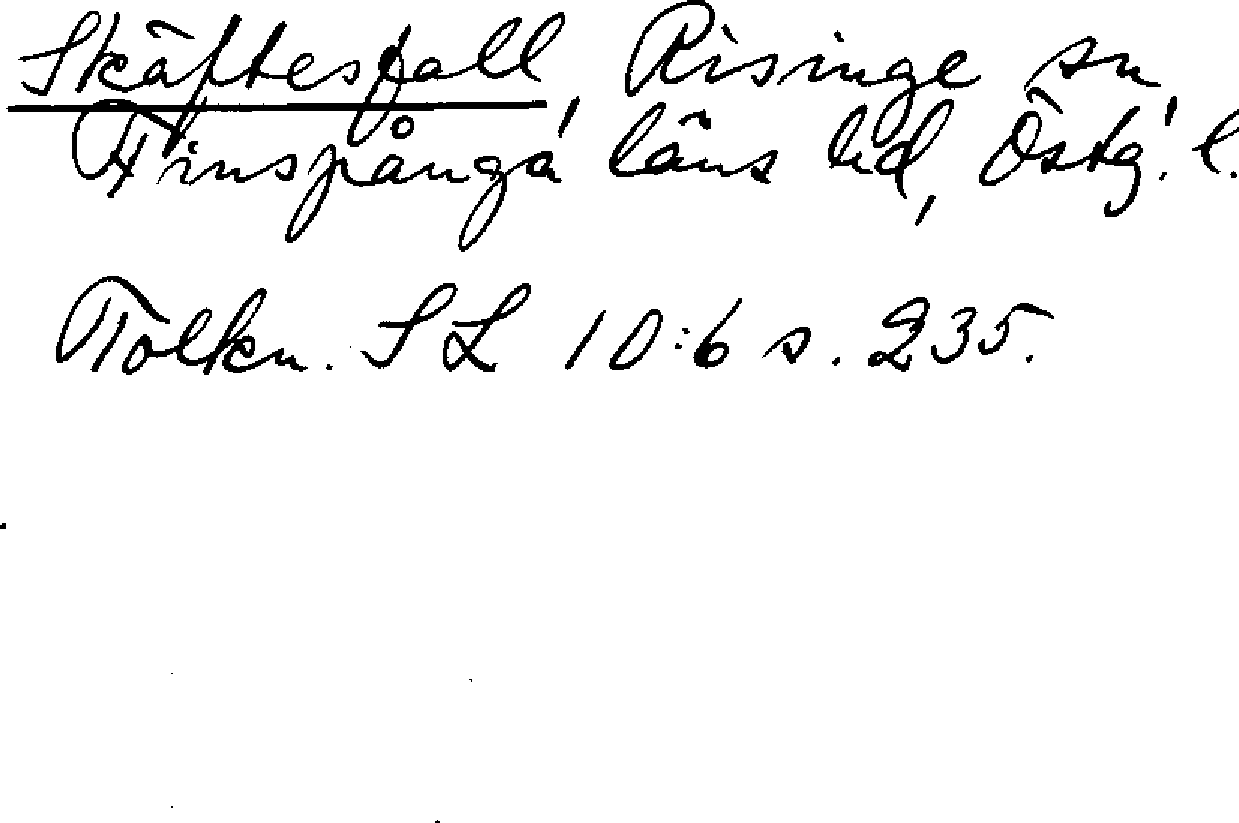 Skäftesfall, Risinge sn
Finspånga läns hd, Östg. l.
Tolkn. SL 10:6 s. 235.